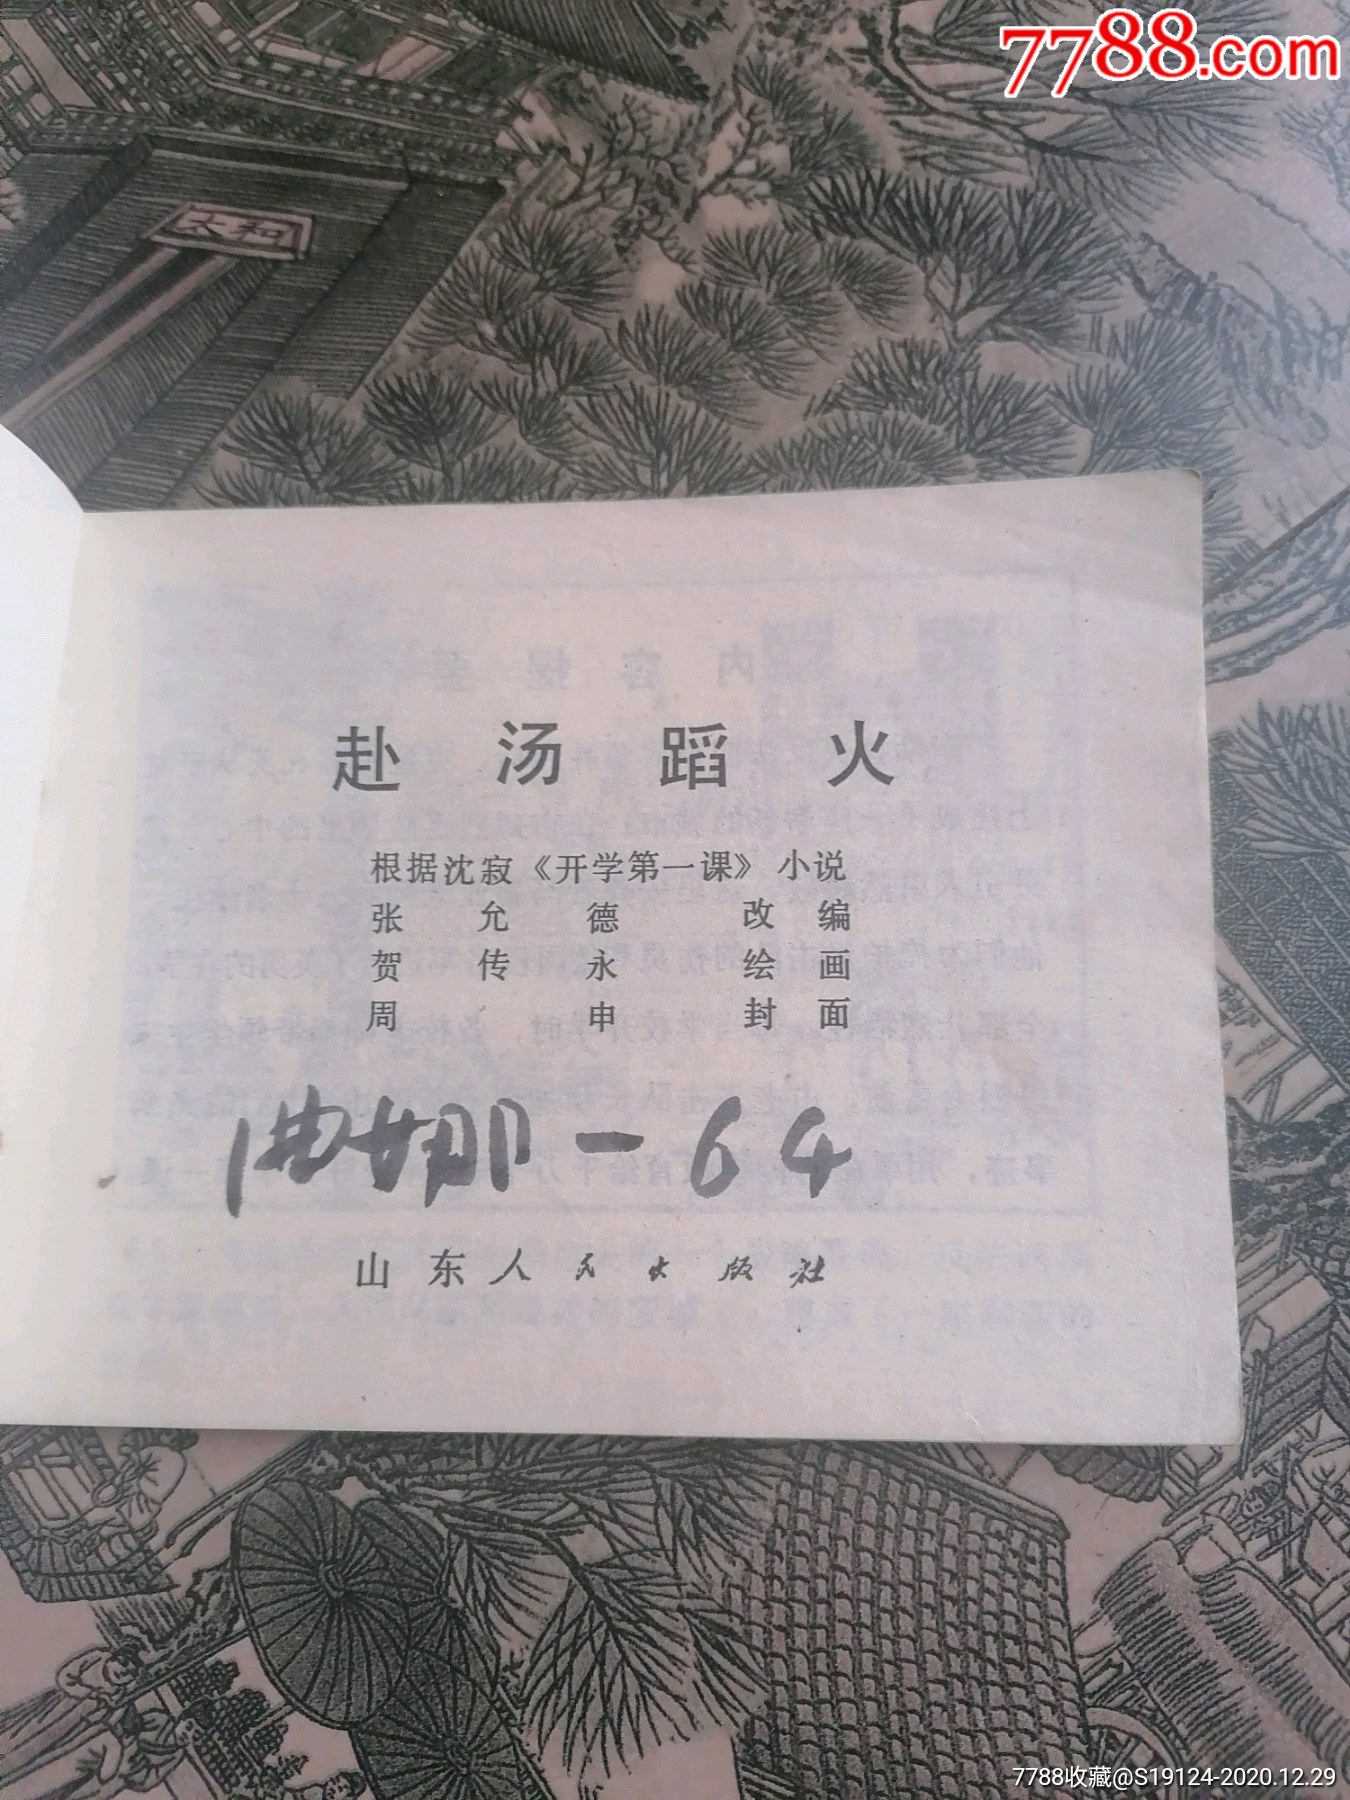 7788.com
太和
赴汤蹈火
根据沈寂《开学第一课》小说
张允德 改编
贺传永 绘画
周申 封面
曲娜-64
山东人民出版社
7788收藏@S19124-2020.12.29